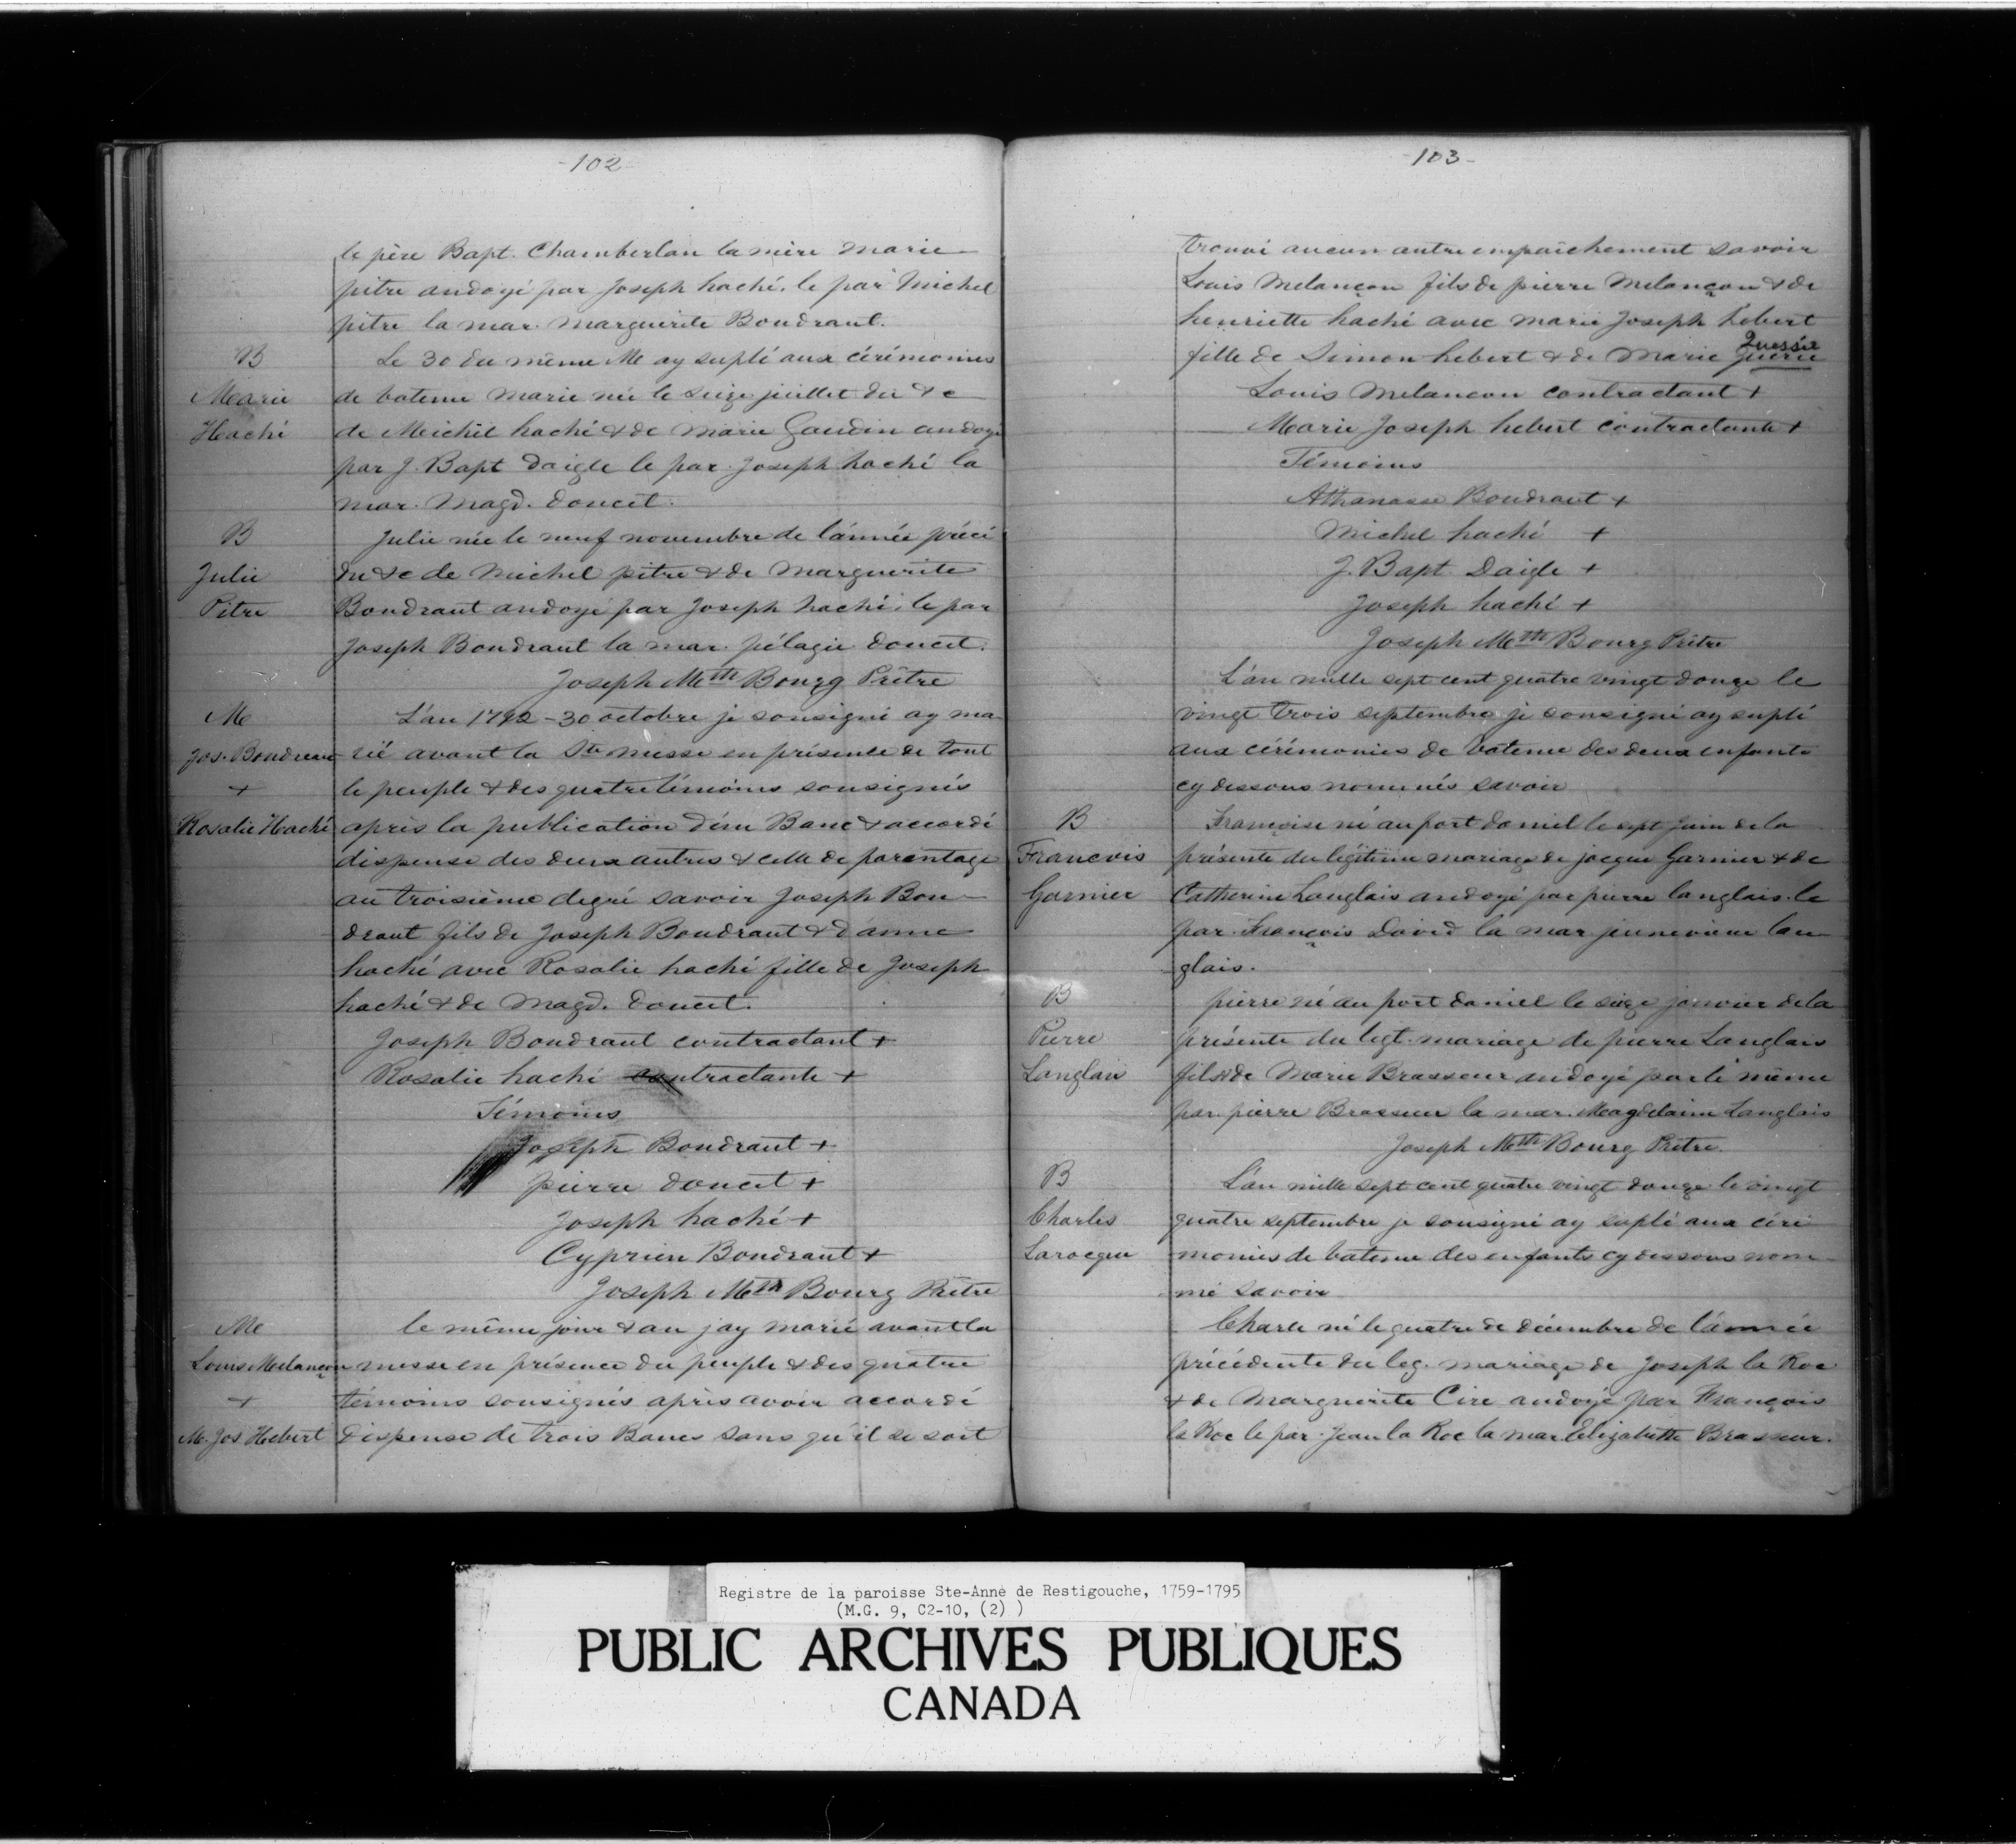 -102-
le père Bapt. Chamberlan la mère Marie
pitre andoyé par Joseph haché. le par Michel
pitre la mar. Marguerite Boudraut.
B
Marie
Haché
Le 30 du même Me ay suplé aux cérémonies
de bateme Marie née le seize juillet du &c
de Meichel haché & de Marie Gaudin andoyé
par J. Bapt daigle le par. Joseph haché la
mar. Magd. doucet.
B
Julie
Pitre
Julie née le neuf novembre de l'année précé
du &c de Michel pitre & de Marguerite
Boudraut andoyé par Joseph haché, le par
Joseph Boudraut la mar. pélagie doucet.
Joseph Mtth Bourg Prêtre
Me
Jos. Boudreau
+
Rosalie Haché
L'an 1792-30 octobre je sousigné ay ma
rié avant la Ste messe en présente de tout
le peuple & des quatre témoins sousignés
après la publication d'un Banc & accordé
dispense des deux autres & celle de parentage
au troisième degré savoir Joseph Bou-
draut fils de Joseph Boudraut & d'anne
haché avec Rosalie haché fille de Joseph
haché & de Magd. doucet.
Joseph Boudraut contractant +
Rosalie haché contractante +
Témoins
Joseph Boudraut +
pierre doucet +
Joseph haché +
Cyprien Boudraut +
Joseph Mtth Bourg Prêtre
Me
Louis Melançon
+
M. Jos Hebert
le même jour & an jay marié avant la
messe en présence du peuple & des quatre
témoins sousignés après avoir accordé
dispense de trois Bancs sans qu'il se soit
-103-
trouvé aucun autre empaichement savoir
Louis Melançon fils de pierre Melançon & de
henriette haché avec marie Joseph hebert
fille de Simon hebert & de Marie querie
Quessie
Louis Melancon contractant +
Marie Joseph hebert contractante +
Témoins
Athanasse Boudraut +
Michel haché +
J. Bapt Daigle +
Joseph haché +
Joseph Mtth Bourg Prêtre
L'an mille sept cent quatre vingt douze le
vingt trois septembre je sousigné ay suplé
aux cérémonies de bateme des deux enfants
cy dessous nommés savoir
B
Francois
Garnier
Françoise né au port daniel le sept juin de la
présente du légitime mariage de jacque Garnier & de
Catherine Langlais andoyé par pierre langlais. le
par. François David la mar. jeunevieve lan
glais.
B
Pierre
Langlais
pierre né au port daniel le seize janvier de la
présente du legt. mariage de pierre Langlais
fils & de Marie Brasseur andoyé par le même
par. pierre Brasseur la mar. Magdelaine Langlais
Joseph Mtth Bourg Prêtre.
B
Charles
Larocque
L'an mille sept cent quatre vingt douze le vingt
quatre septembre je sousigné ay suplé aux céré
monies de bateme des enfants cy dessous nom-
mé savoir
Charle né le quatre de décembre de l'année
précédente du leg. mariage de Joseph la Roc
& de Marguerite Cire andoyé par François
la Roc le par. Jean la Roc la mar. Elizabette Brasseur.
Registre de la paroisse Ste-Anne de Restigouche, 1759-1795
(M.G. 9, C2-10, (2) )
PUBLIC ARCHIVES PUBLIQUES
CANADA